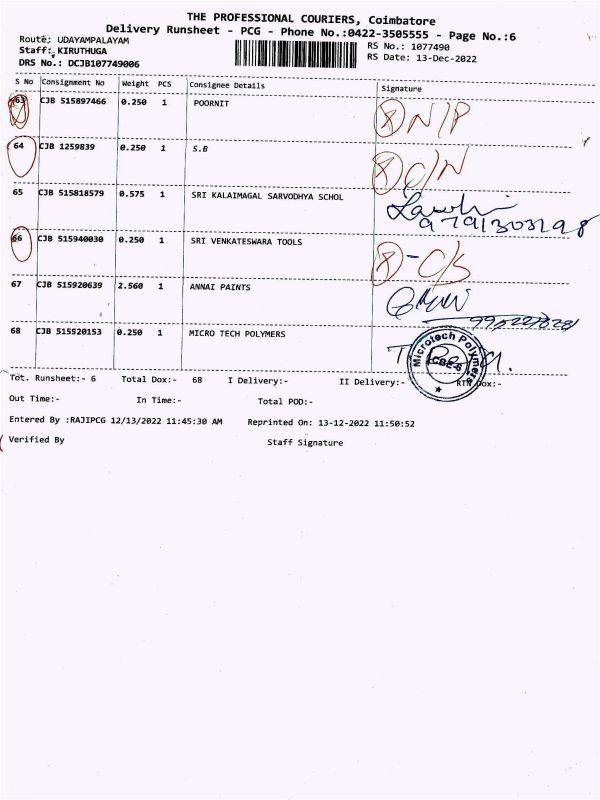 THE PROFESSIONAL COURIERS, Coimbatore
Delivery Runsheet - PCG - Phone No.:0422-3505555 - Page No.:6
Route: UDAYAMPALAYAM
RS No.: 1077490
Staff: KIRUTHUGA
RS Date: 13-Dec-2022
DRS No.: DCJB107749006
S No Consignment No Weight PCS Consignee Details Signature
63 CJB 515897466 0.250 1 POORNIT N/P
64 CJB 1259839 0.250 1 S.B O/N
65 CJB 515818579 0.575 1 SRI KALAIMAGAL SARVODHYA SCHOL
9791303198
66 CJB 515940030 0.250 1 SRI VENKATESWARA TOOLS - C/S
67 CJB 515920639 2.560 1 ANNAI PAINTS
68 CJB 515920153 0.250 1 MICRO TECH POLYMERS
Microtech Polymers CBE-6
Tot. Runsheet:- 6 Total Dox:- 68 I Delivery:- II Delivery:- RTN Dox:-
Out Time:- In Time:- Total POD:-
Entered By :RAJIPCG 12/13/2022 11:45:30 AM Reprinted On: 13-12-2022 11:50:52
Verified By Staff Signature